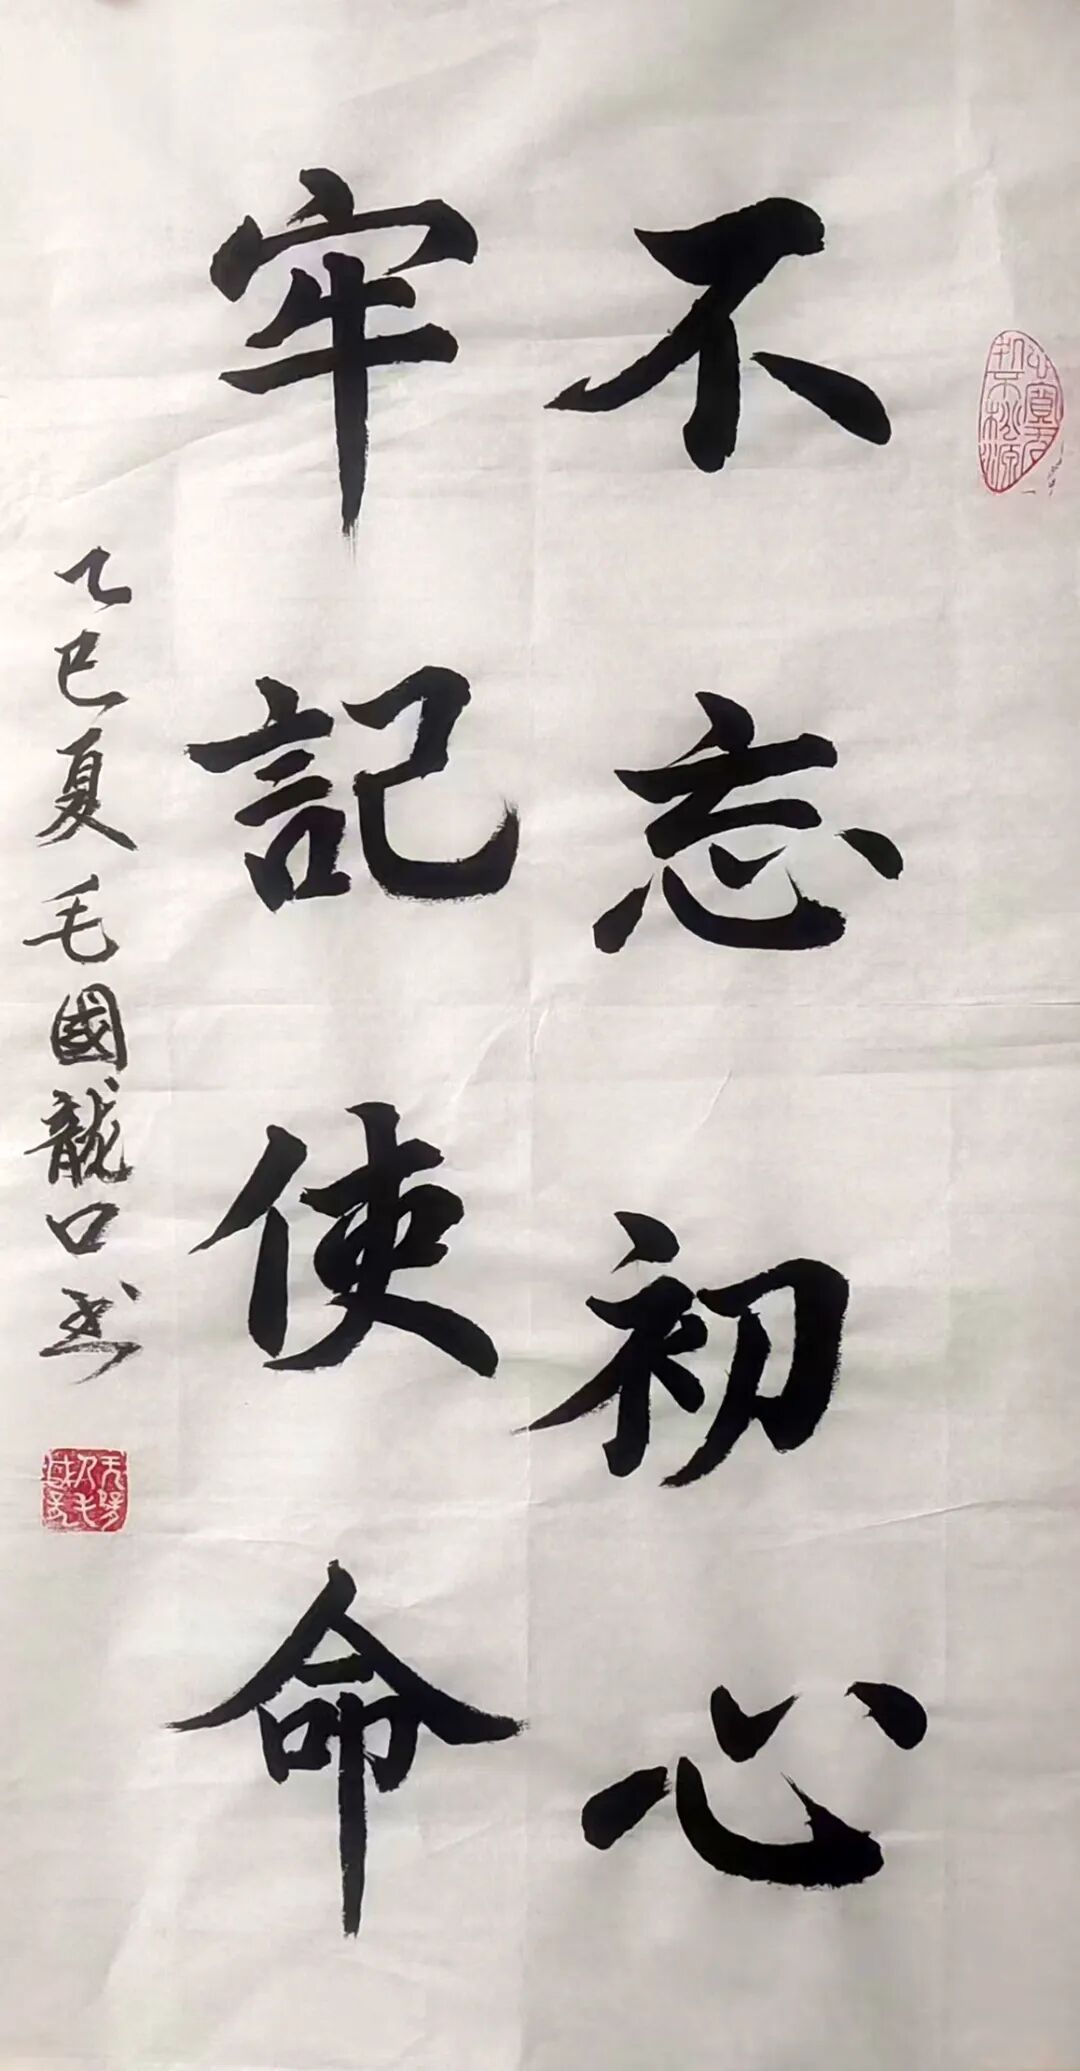 不忘初心
牢記使命
乙巳夏毛國龍口书